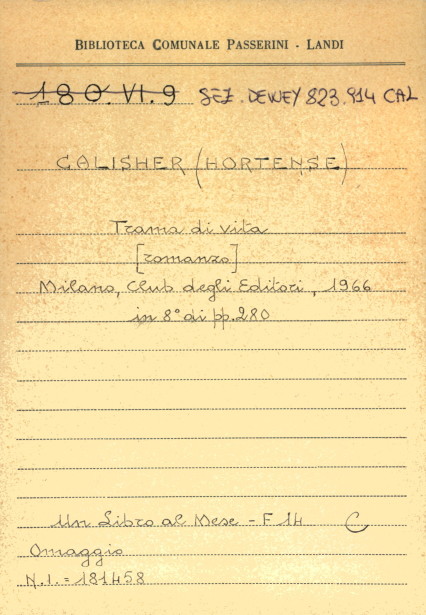 BIBLIOTECA COMUNALE PASSERINI - LANDI
180.VI.9 SEZ. DEWEY 823.914 CAL
CALISHER (HORTENSE)
Trama di vita
[romanzo]
Milano, Club degli Editori, 1966
in 8° di pp. 280
Un Libro al Mese - F 14 C
Omaggio
N.I. = 181458